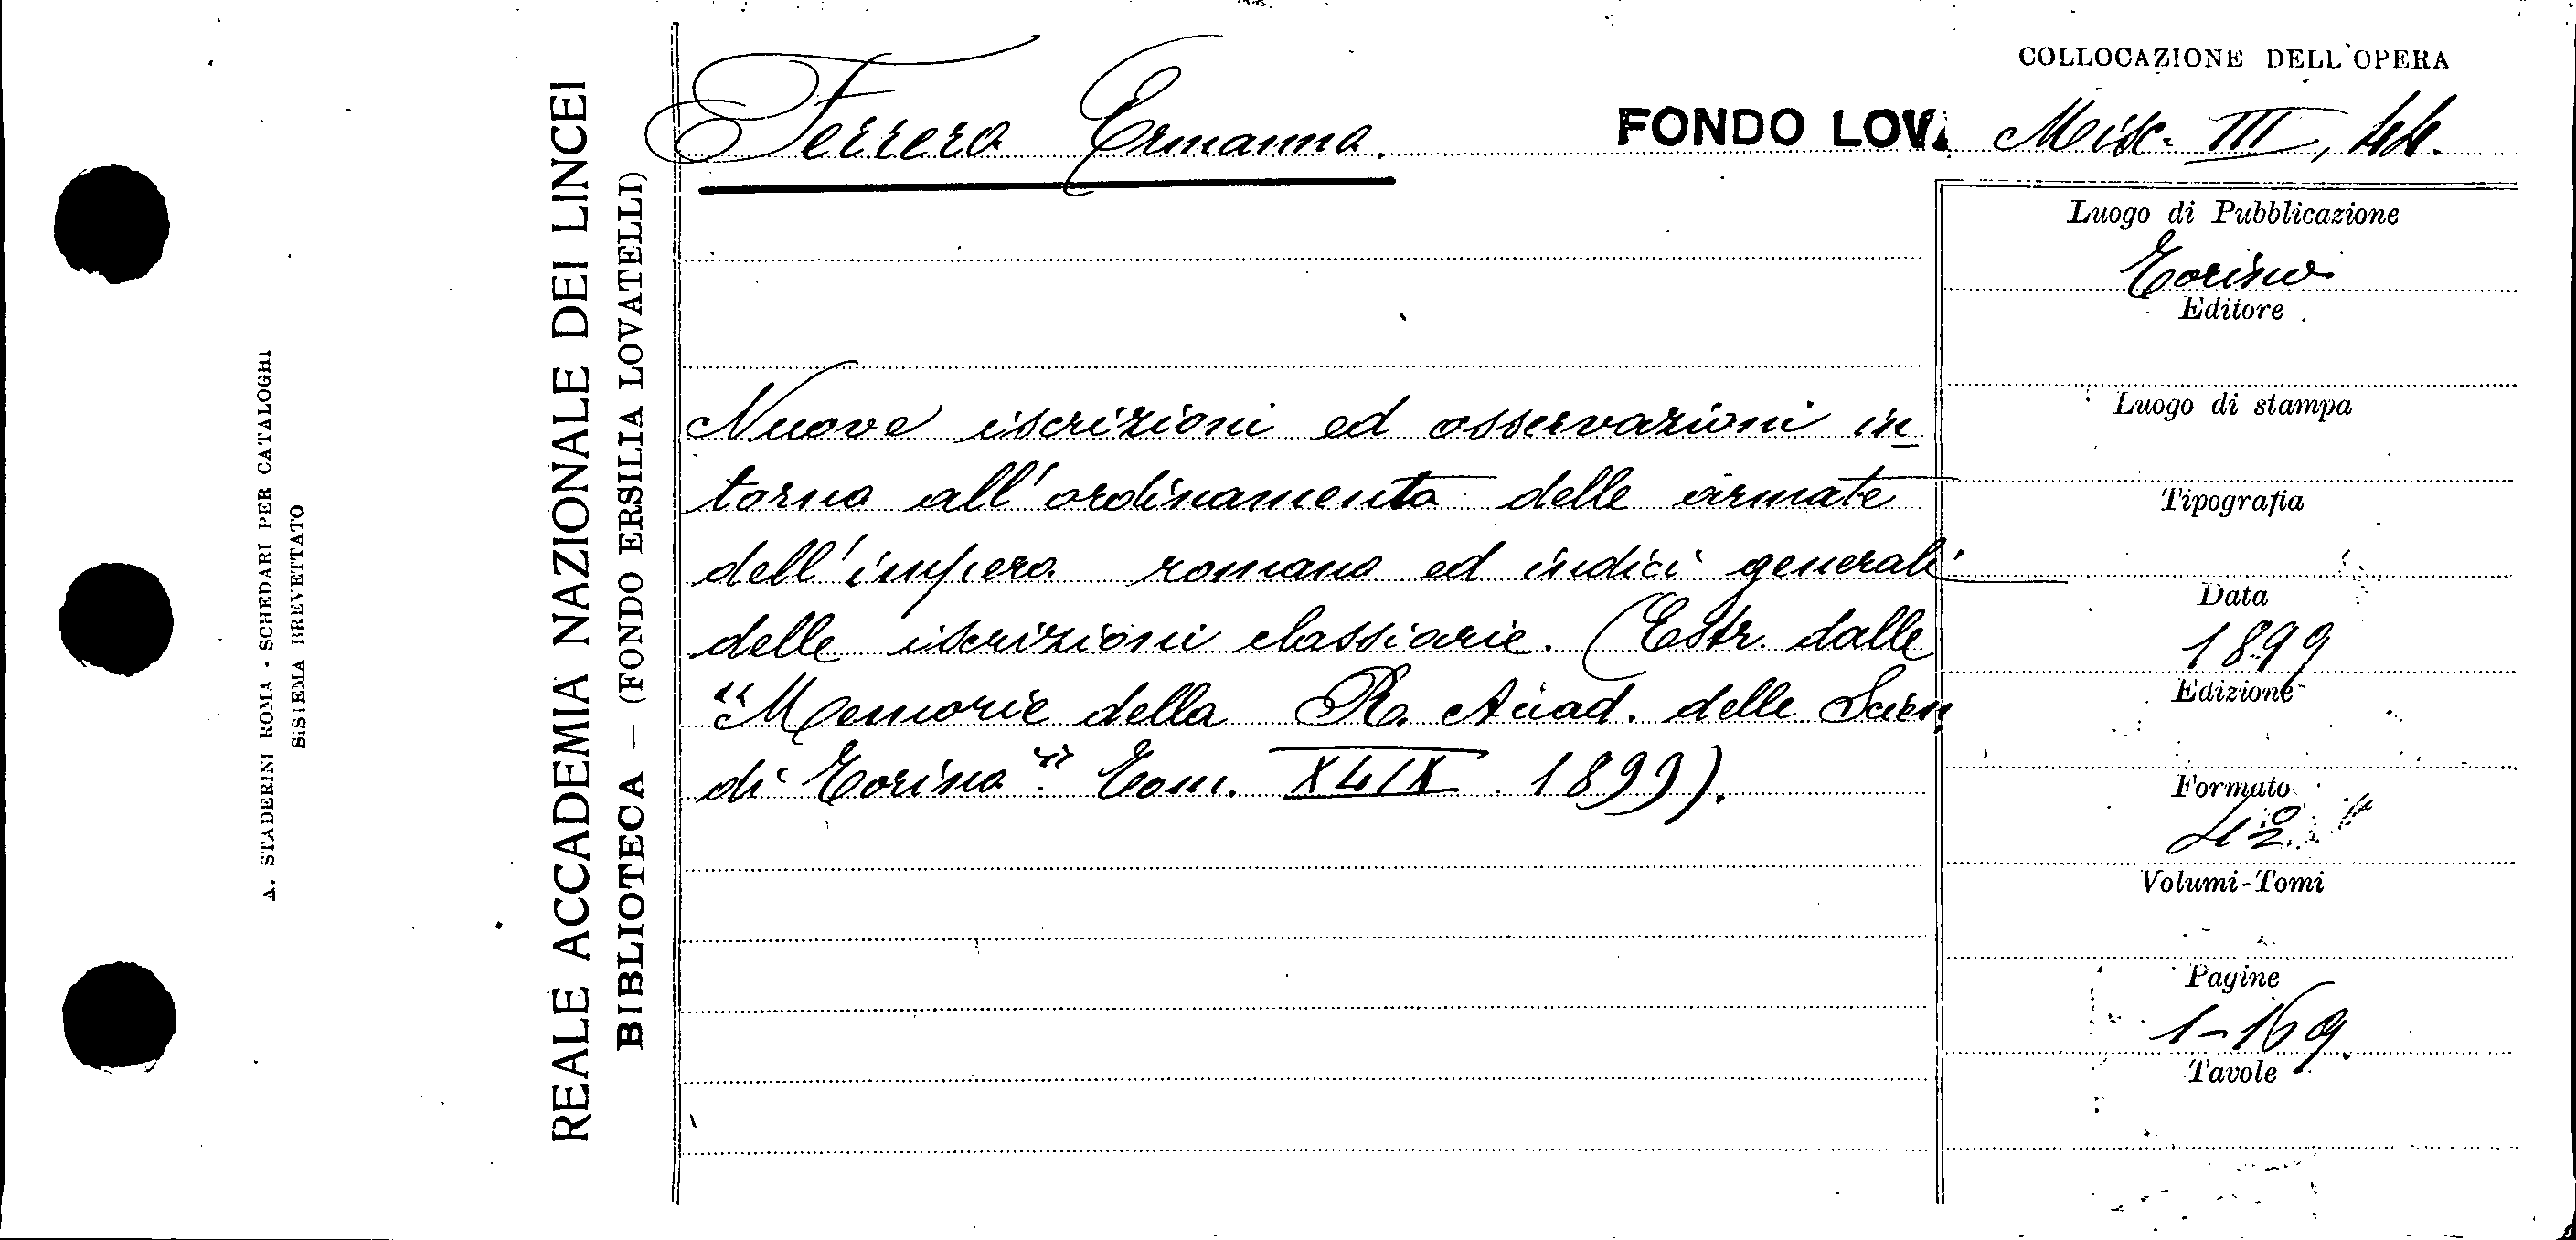 COLLOCAZIONE DELL'OPERA
Ferrero Ermanno.
FONDO LOV. Misc. III, 44.
Luogo di Pubblicazione
Torino
Editore
Luogo di stampa
Tipografia
Data
1899
Edizione
Formato
4º
Volumi-Tomi
Pagine
1-169.
Tavole
Nuove iscrizioni ed osservazioni in
torno all'ordinamento delle armate
dell'impero romano ed indici generali
delle iscrizioni classiarie. (Estr. dalle
"Memorie della R. Accad. delle Scien.
di Torino". Tom. XLIX. 1899).
REALE ACCADEMIA NAZIONALE DEI LINCEI
BIBLIOTECA — (FONDO ERSILIA LOVATELLI)
A. STADERINI ROMA - SCHEDARI PER CATALOGHI
SISTEMA BREVETTATO